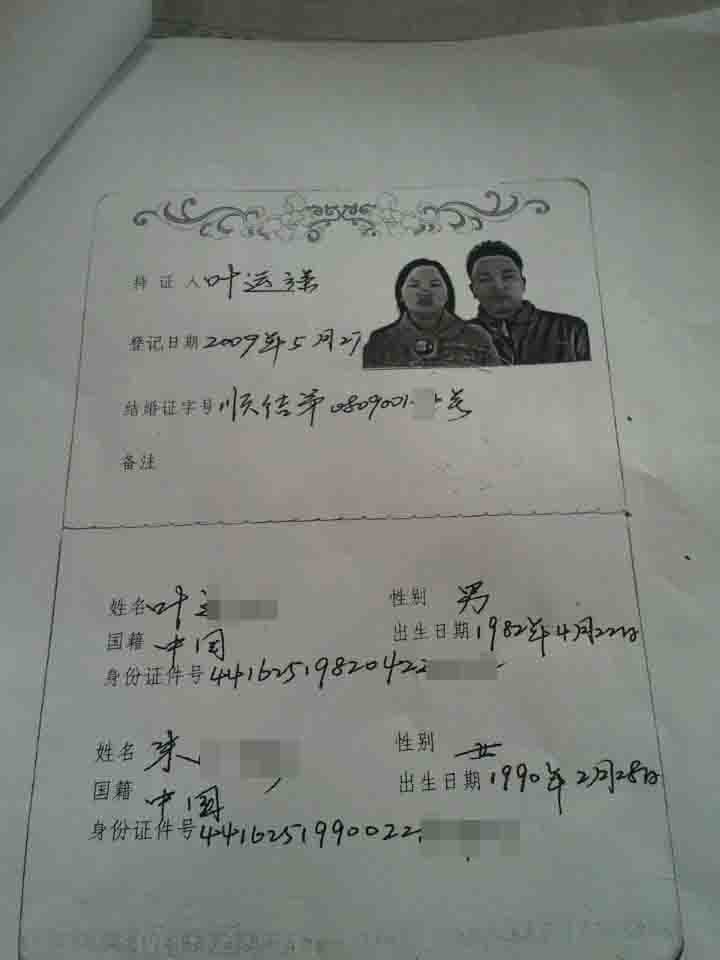 持证人 叶运
登记日期 2009年5月27
结婚证字号 顺结第0809001 号
备注
姓名 叶
性别 男
国籍 中国
出生日期 1982年4月22日
身份证件号 44162519820422
姓名 朱
性别 女
国籍 中国
出生日期 1990年2月28日
身份证件号 4416251990022